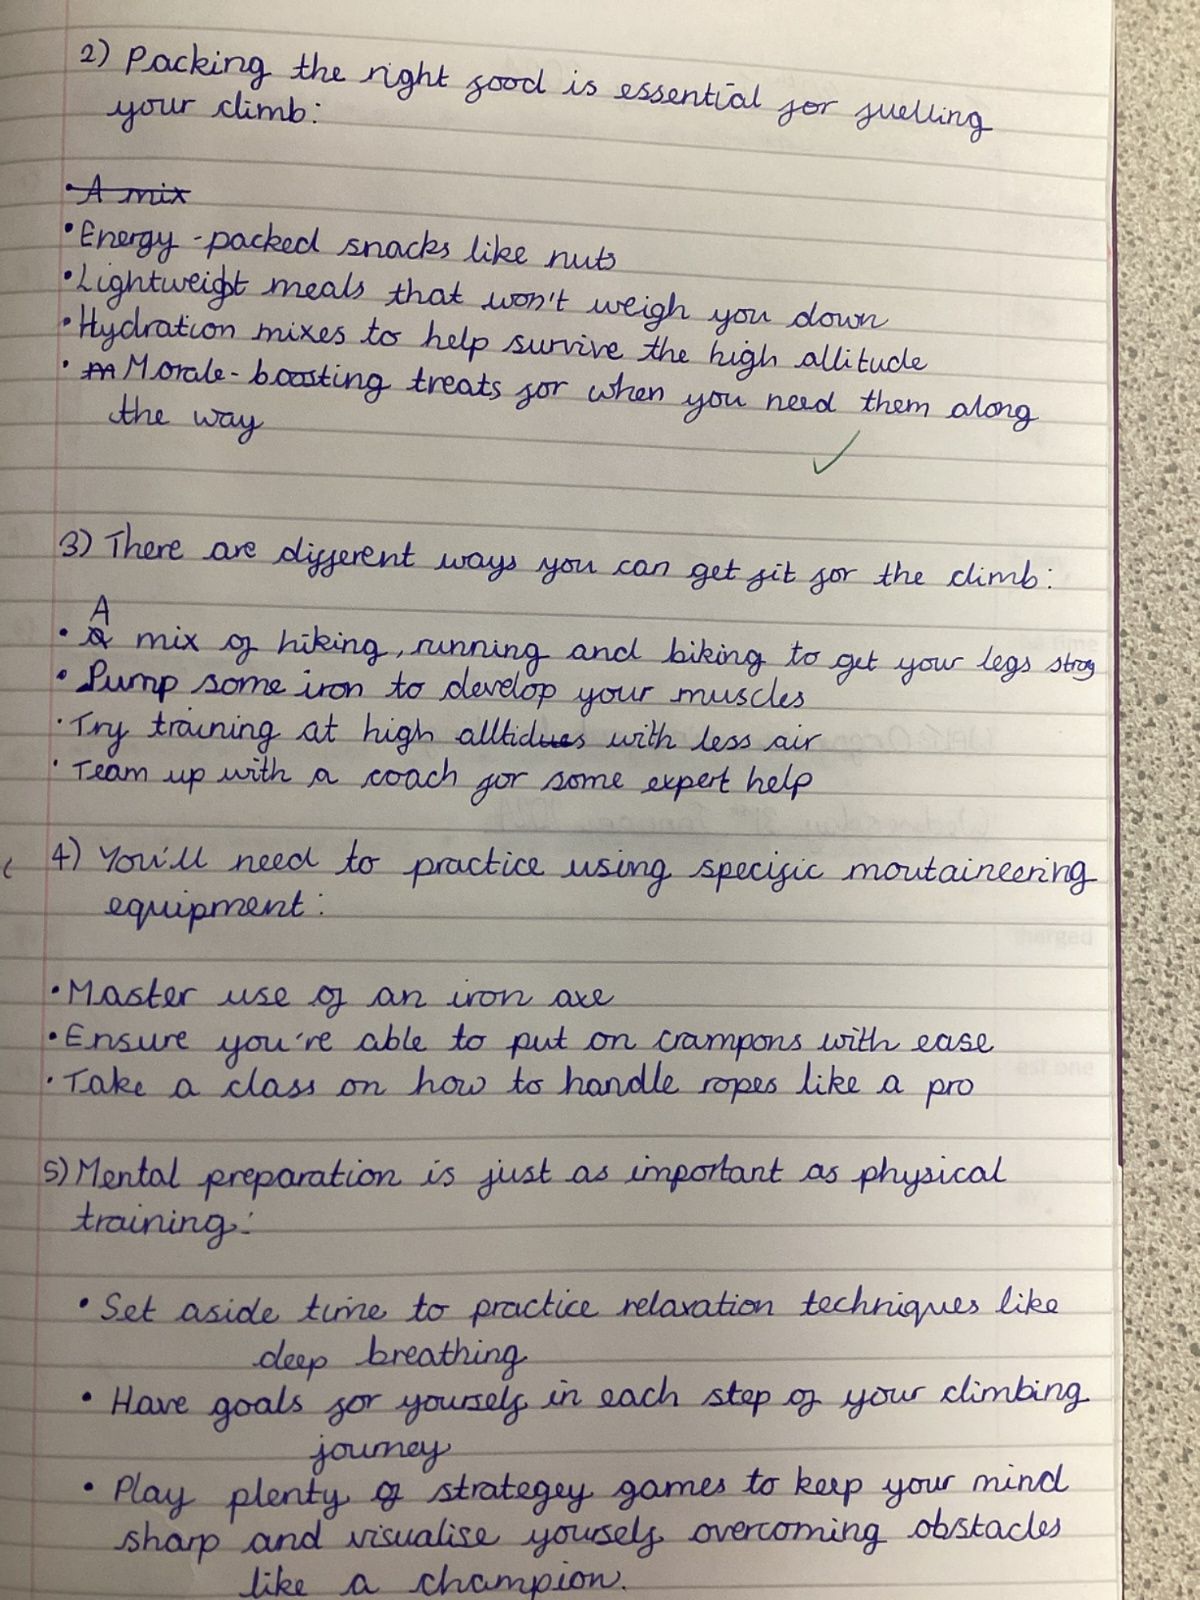 2) Packing the right food is essential for fuelling
your climb:
• A mix
• Energy-packed snacks like nuts
• Lightweight meals that won't weigh you down
• Hydration mixes to help survive the high allitude
• m Morale-boosting treats for when you need them along
the way
3) There are different ways you can get fit for the climb:
A
• a mix of hiking, running and biking to get your legs strog
• Pump some iron to develop your muscles
• Try training at high alltidues with less air
• Team up with a coach for some expert help
4) You'll need to practice using specific moutaineering
equipment:
• Master use of an iron axe
• Ensure you're able to put on crampons with ease
• Take a class on how to handle ropes like a pro
5) Mental preparation is just as important as physical
training:
• Set aside time to practice relaxation techniques like
deep breathing
• Have goals for yourself in each step of your climbing
journey
• Play plenty of strategey games to keep your mind
sharp and visualise youself overcoming obstacles
like a champion.